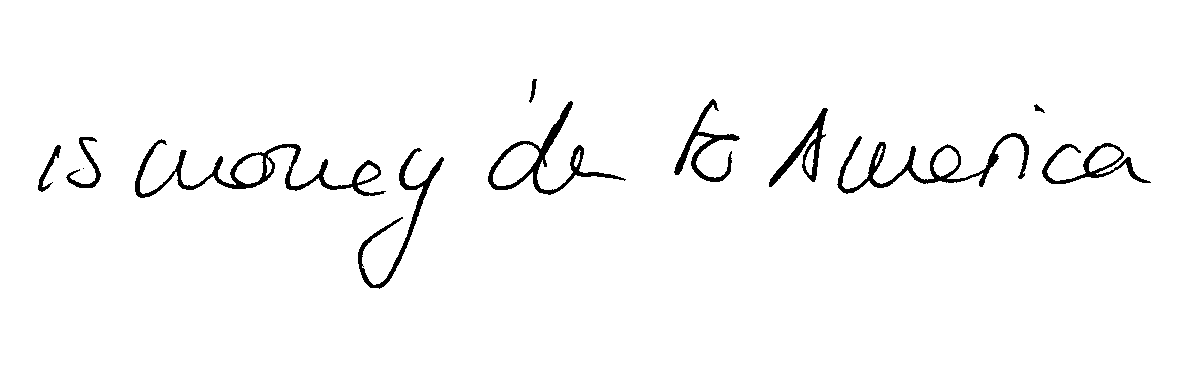 is money due to America